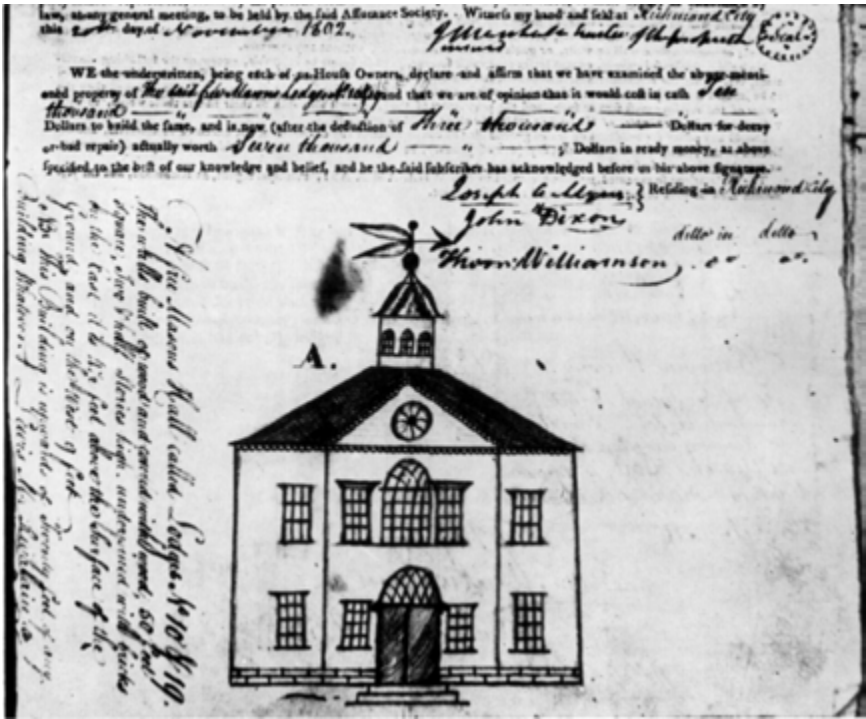 law, at any general meeting, to be held by the said Assurance Society. Witness my hand and seal at Richmond City
this 20th day of November 1802.
Seal
WE the underwritten, being each of us House Owners, declare and affirm that we have examined the above-menti-
oned property of and that we are of opinion that it would cost in cash Ten
thousand
Dollars to build the same, and is now (after the deduction of Three thousand Dollars for decay
or bad repair) actually worth Seven thousand Dollars in ready money, as above
specified to the best of our knowledge and belief, and he the said subscriber has acknowledged before us his above signature.
Joseph Residing in Richmond City
John Dixon ditto in ditto
Williamson do do.
A.
Free Masons Hall called Lodges, No 10 & 19.
The walls built of wood and covered with wood, 50 feet
square, Two & half stories high. underpined with bricks
on the East it is six feet above the surface of the
ground and on the West 9 feet
This Building is upwards of Seventy feet of any
Building Whatever